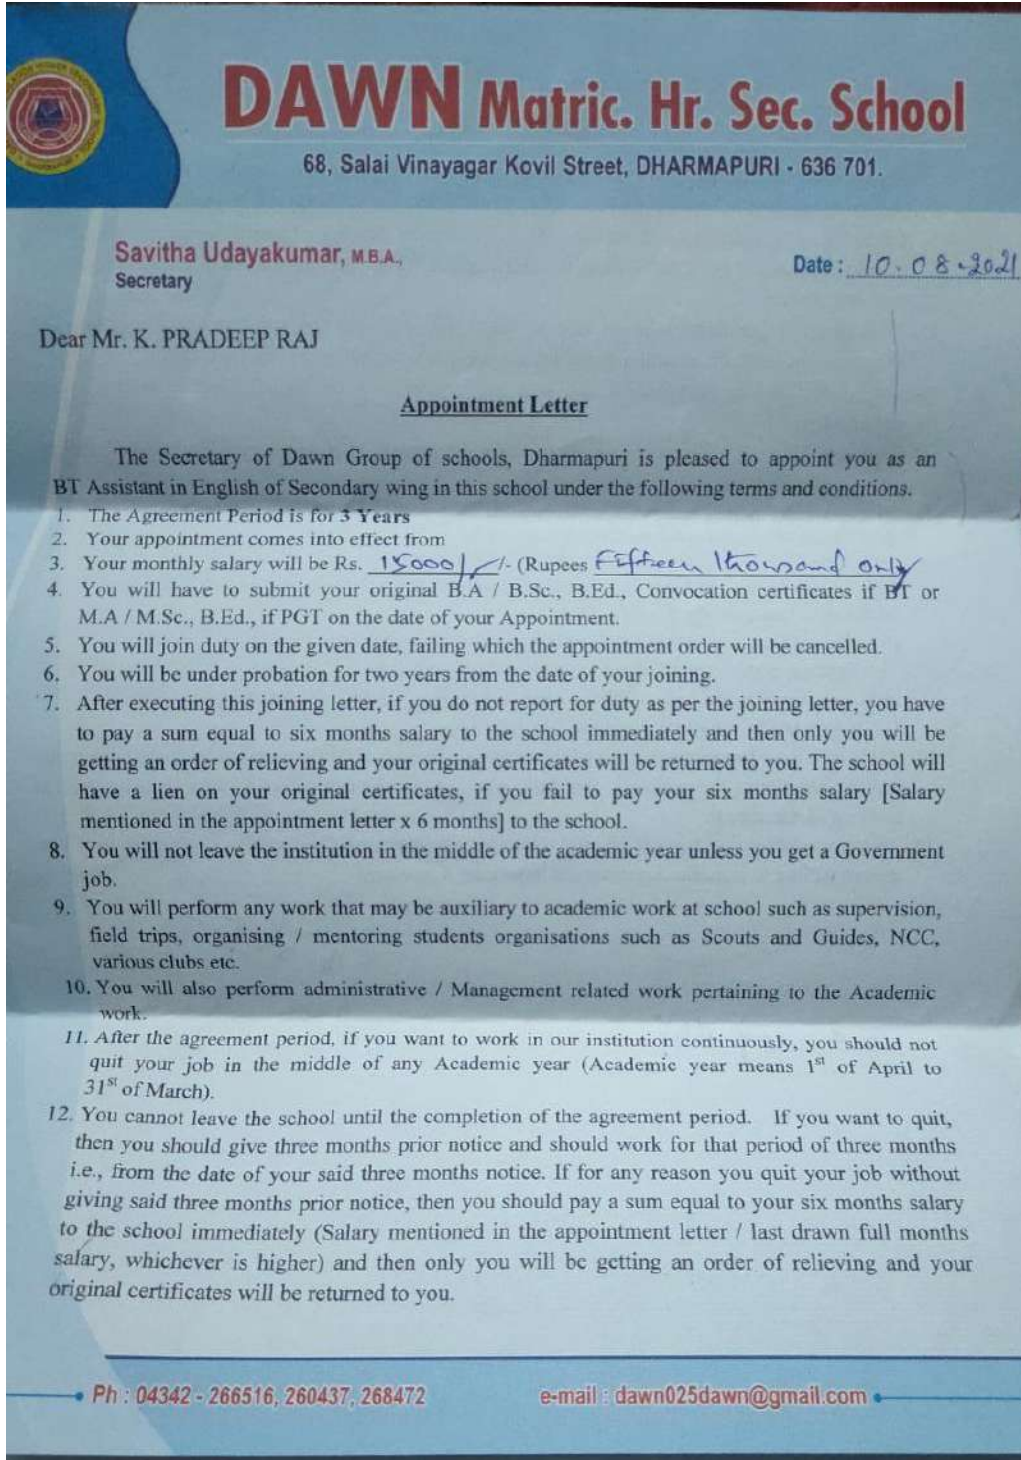 DAWN Matric. Hr. Sec. School
68, Salai Vinayagar Kovil Street, DHARMAPURI - 636 701.
Savitha Udayakumar, M.B.A.,
Secretary
Date : 10.08.2021
Dear Mr. K. PRADEEP RAJ
Appointment Letter
The Secretary of Dawn Group of schools, Dharmapuri is pleased to appoint you as an
BT Assistant in English of Secondary wing in this school under the following terms and conditions.
1. The Agreement Period is for 3 Years
2. Your appointment comes into effect from
3. Your monthly salary will be Rs. 15000/- /- (Rupees Fifteen thousand only
4. You will have to submit your original B.A / B.Sc., B.Ed., Convocation certificates if BT or
M.A / M.Sc., B.Ed., if PGT on the date of your Appointment.
5. You will join duty on the given date, failing which the appointment order will be cancelled.
6. You will be under probation for two years from the date of your joining.
7. After executing this joining letter, if you do not report for duty as per the joining letter, you have
to pay a sum equal to six months salary to the school immediately and then only you will be
getting an order of relieving and your original certificates will be returned to you. The school will
have a lien on your original certificates, if you fail to pay your six months salary [Salary
mentioned in the appointment letter x 6 months] to the school.
8. You will not leave the institution in the middle of the academic year unless you get a Government
job.
9. You will perform any work that may be auxiliary to academic work at school such as supervision,
field trips, organising / mentoring students organisations such as Scouts and Guides, NCC,
various clubs etc.
10. You will also perform administrative / Management related work pertaining to the Academic
work.
11. After the agreement period, if you want to work in our institution continuously, you should not
quit your job in the middle of any Academic year (Academic year means 1st of April to
31st of March).
12. You cannot leave the school until the completion of the agreement period. If you want to quit,
then you should give three months prior notice and should work for that period of three months
i.e., from the date of your said three months notice. If for any reason you quit your job without
giving said three months prior notice, then you should pay a sum equal to your six months salary
to the school immediately (Salary mentioned in the appointment letter / last drawn full months
salary, whichever is higher) and then only you will be getting an order of relieving and your
original certificates will be returned to you.
Ph : 04342 - 266516, 260437, 268472
e-mail : dawn025dawn@gmail.com